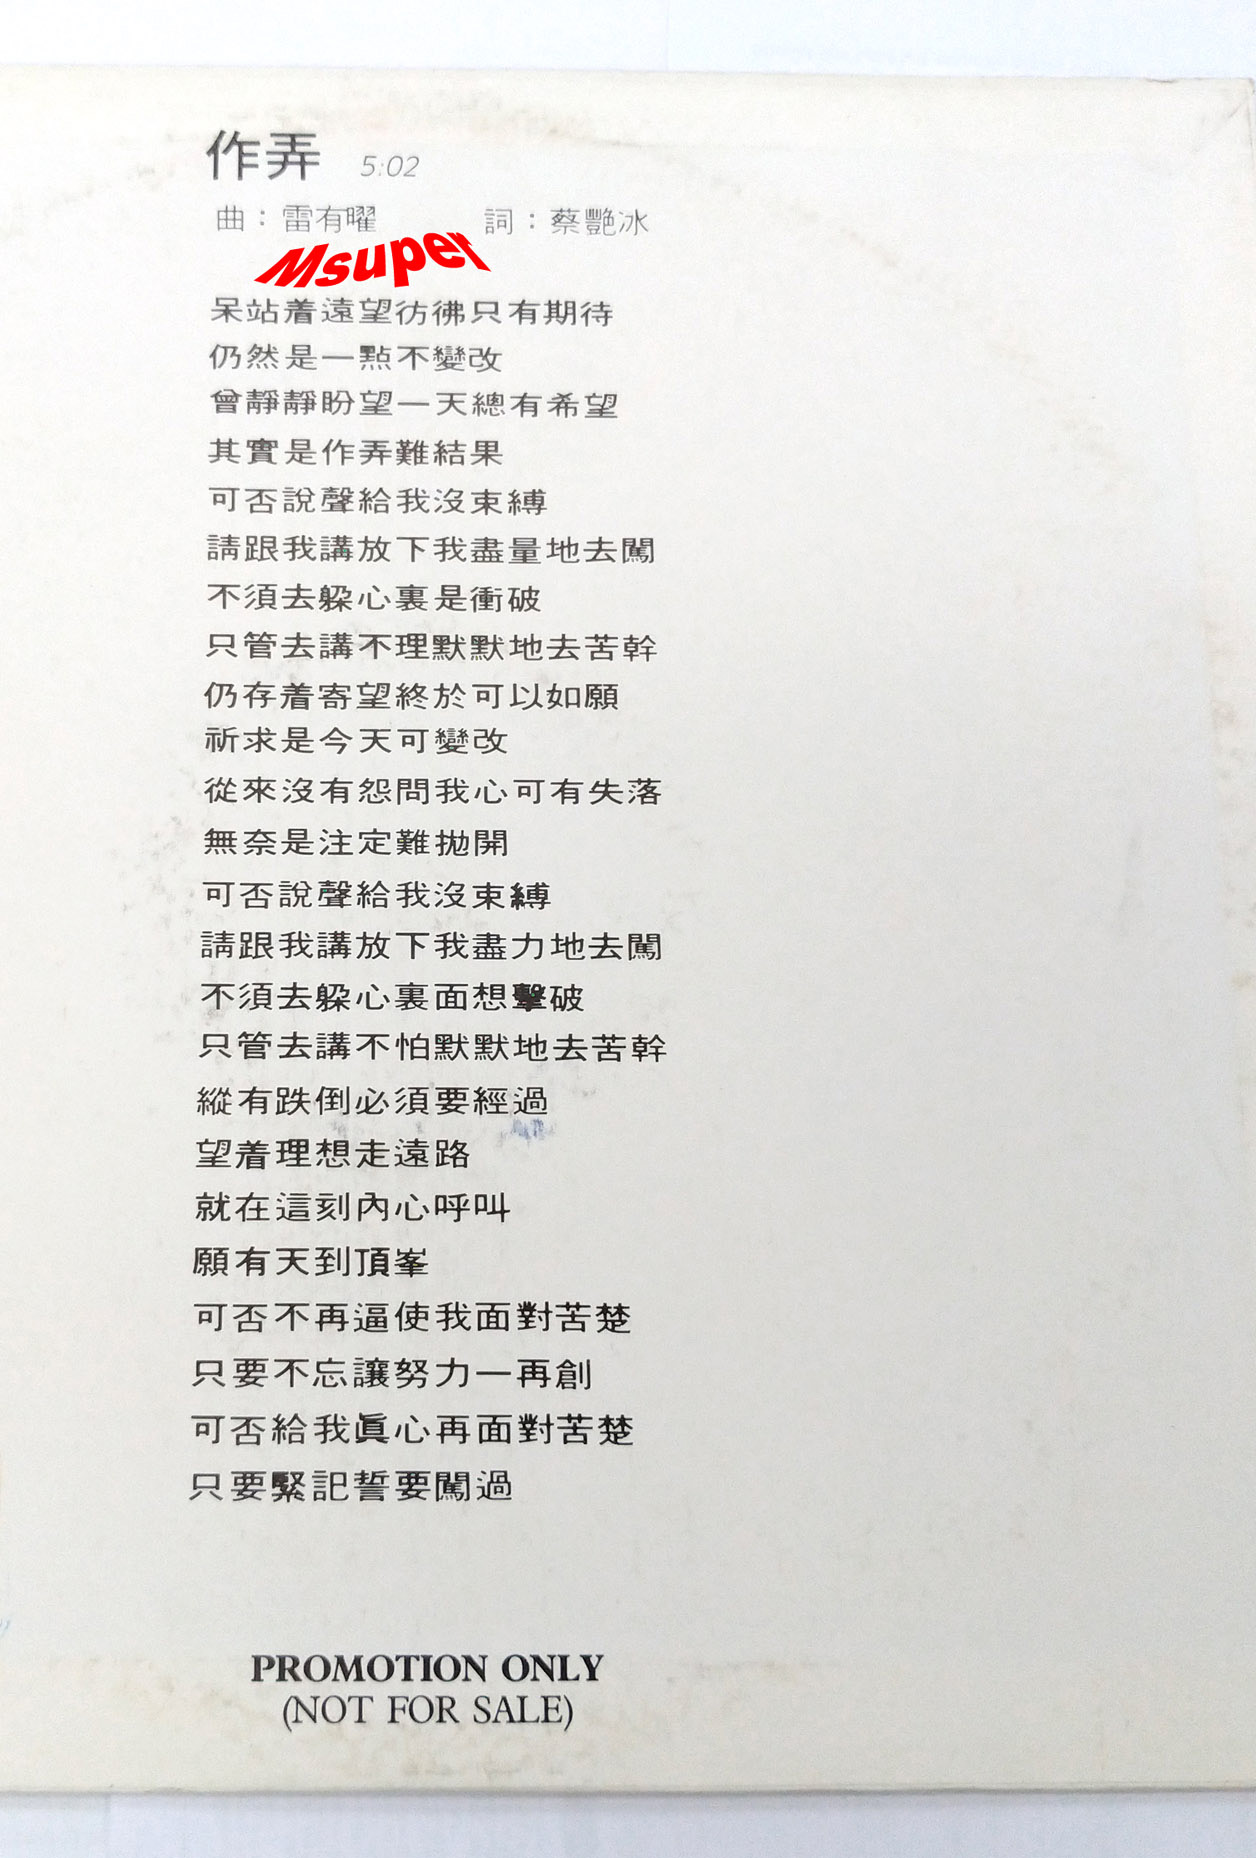 作弄 5:02
曲：雷有曜 詞：蔡艷冰
Msuper
呆站着遠望彷彿只有期待
仍然是一點不變改
曾靜靜盼望一天總有希望
其實是作弄難結果
可否說聲給我沒束縛
請跟我講放下我盡量地去闖
不須去躲心裏是衝破
只管去講不理默默地去苦幹
仍存着寄望終於可以如願
祈求是今天可變改
從來沒有怨問我心可有失落
無奈是注定難拋開
可否說聲給我沒束縛
請跟我講放下我盡力地去闖
不須去躲心裏面想擊破
只管去講不怕默默地去苦幹
縱有跌倒必須要經過
望着理想走遠路
就在這刻內心呼叫
願有天到頂峯
可否不再逼使我面對苦楚
只要不忘讓努力一再創
可否給我眞心再面對苦楚
只要緊記誓要闖過
PROMOTION ONLY
(NOT FOR SALE)